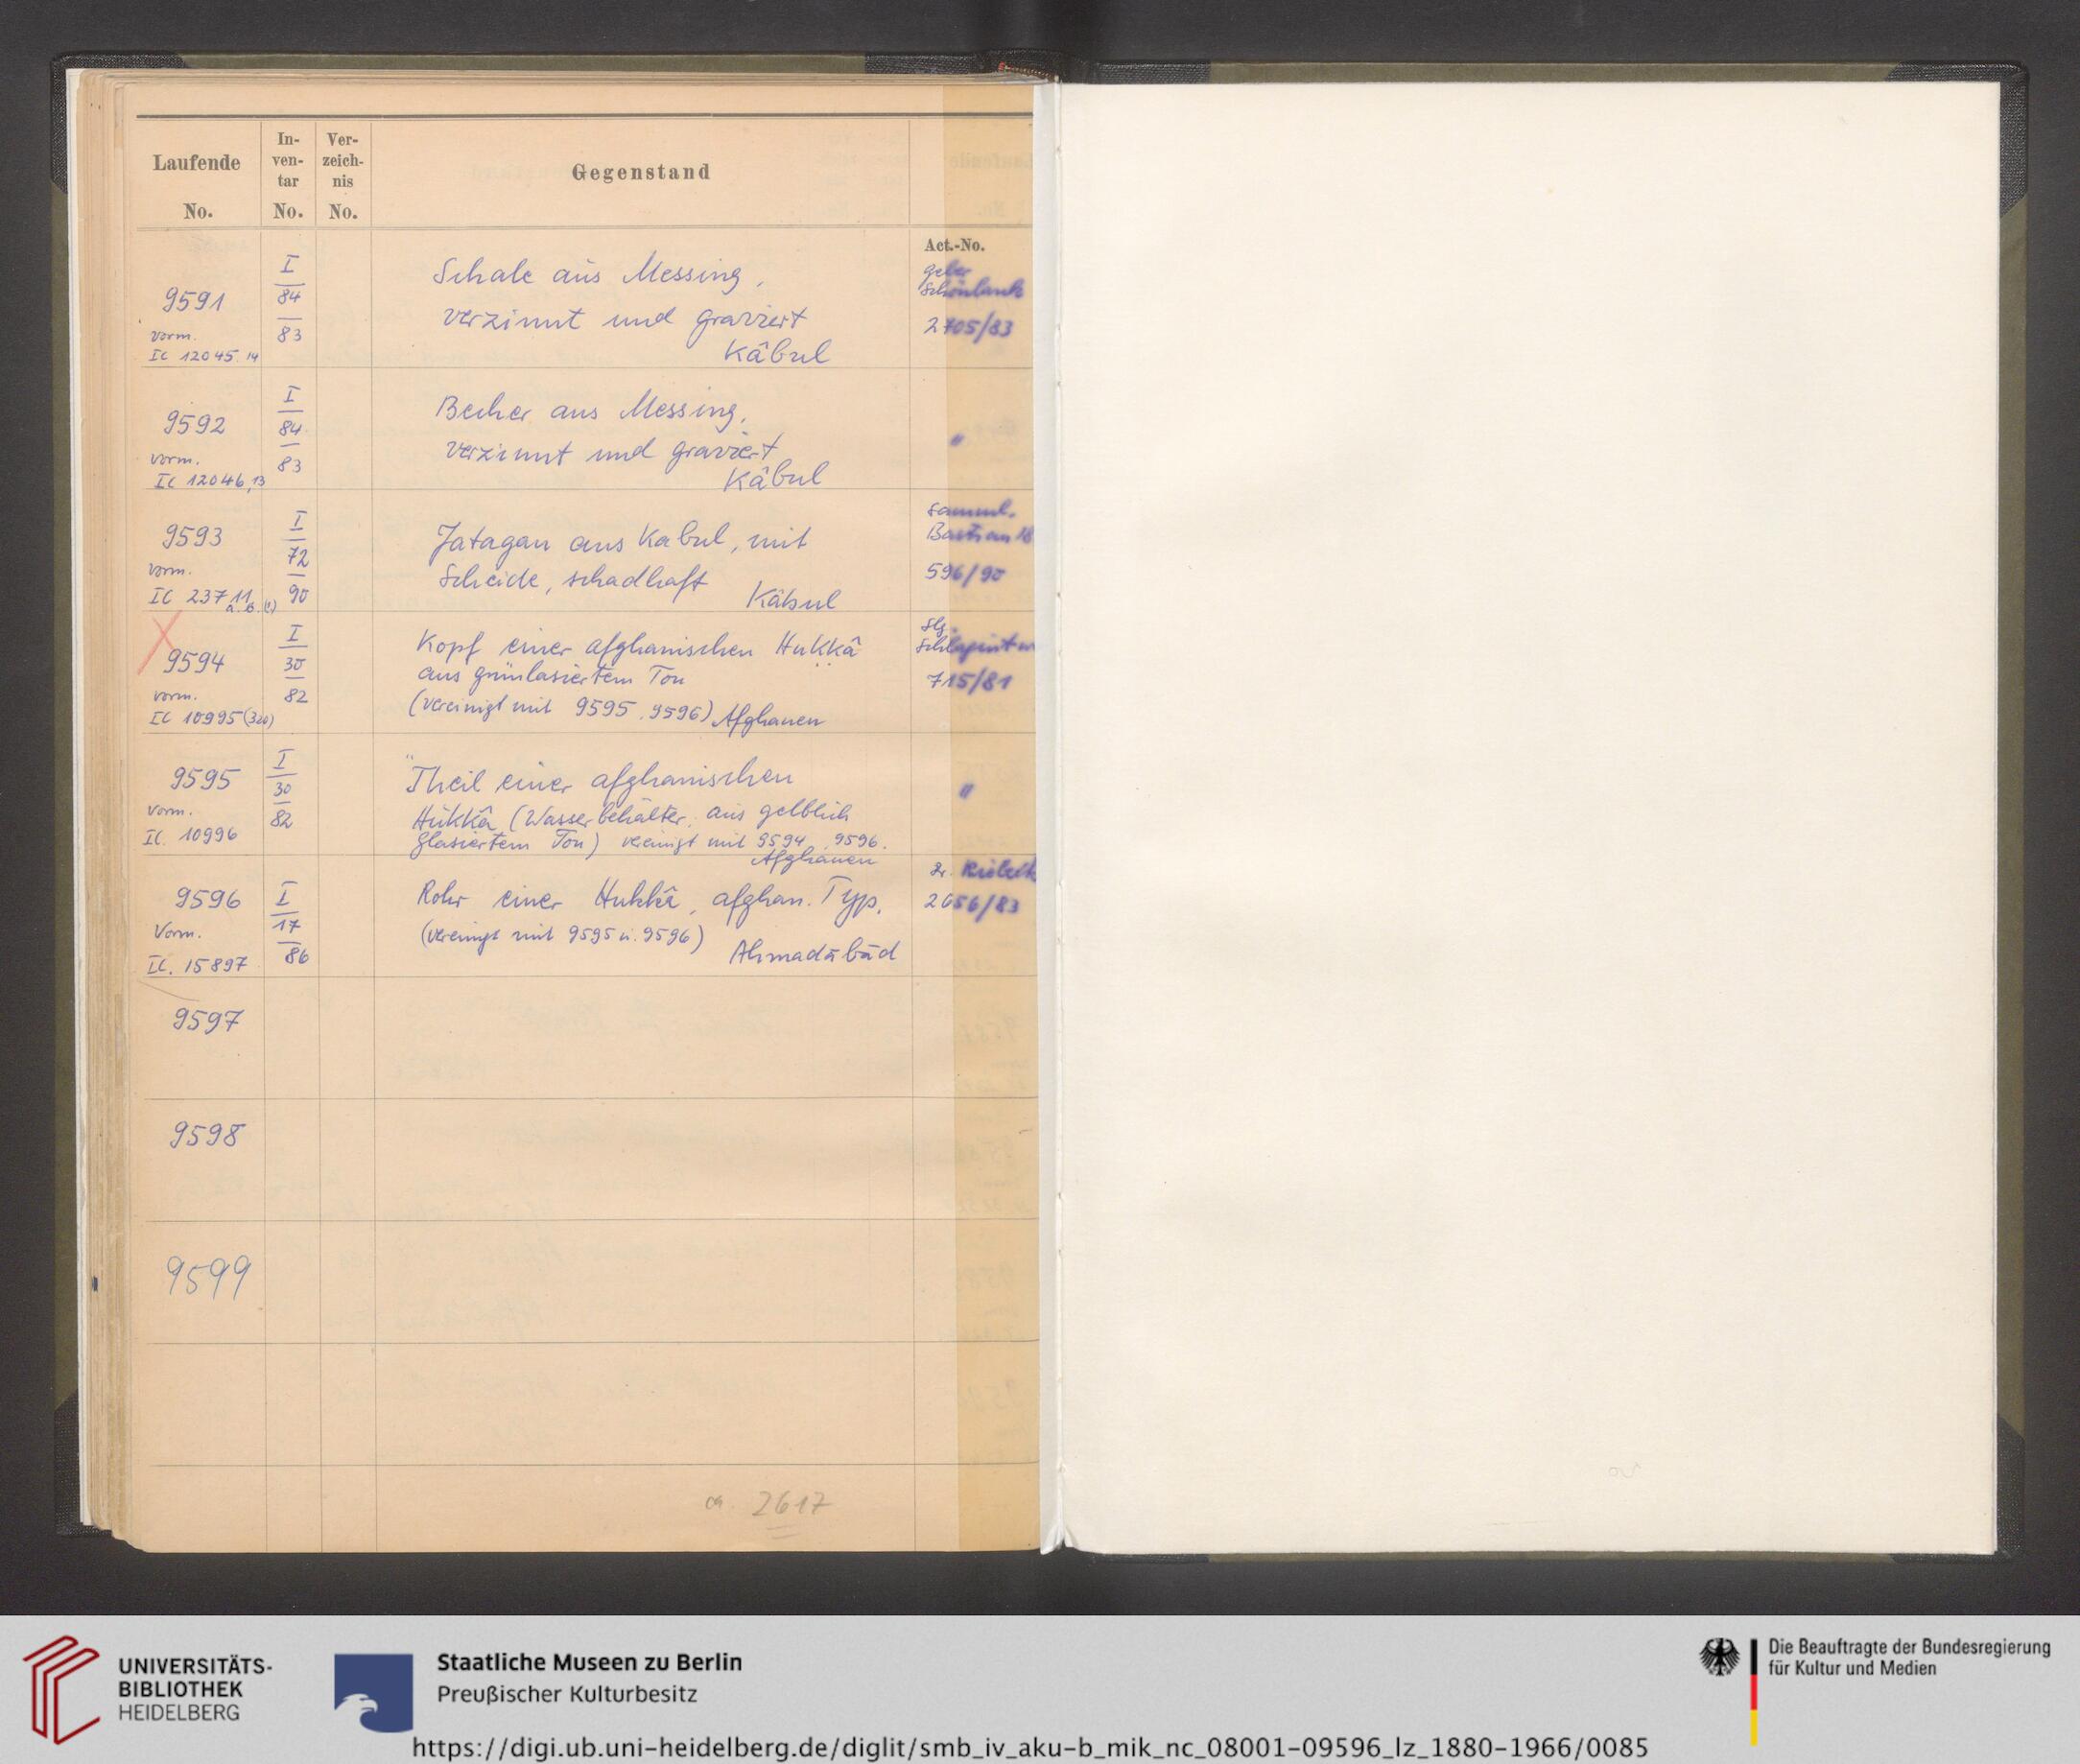 Laufende
No.
In-
ven-
tar
No.
Ver-
zeich-
nis
No.
Gegenstand
Act.-No.
9591
vorm.
IC 12045 14
I
84
83
Schale aus Messing,
verzinnt und graviert
Kâbul
geber
Schönlank
2705/83
9592
vorm.
IC 12046,13
I
84
83
Becher aus Messing,
verzinnt und graviert
Kâbul
"
9593
vorm.
IC 23711
a. b. (c)
I
72
90
Jatagan aus Kabul, mit
Scheide, schadhaft
Kâbul
Samml.
Bastian 18
596/90
9594
vorm.
IC 10995 (320)
I
30
82
Kopf einer afghanischen Hukkâ
aus grünlasiertem Ton
(vereinigt mit 9595, 9596) Afghanen
Slg.
Schlagintw
715/81
9595
vorm.
IC. 10996
I
30
82
"Theil einer afghanischen
Hukkâ (Wasserbehälter, aus gelblich
glasiertem Ton) vereinigt mit 9594, 9596.
Afghanen
"
9596
Vorm.
IC. 15897
I
17
86
Rohr einer Hukkâ, afghan. Typ.
(vereinigt mit 9595 u. 9596)
Ahmadābād
Dr. Riebeck
2656/83
9597
9598
9599
ca. 2617
UNIVERSITÄTS-
BIBLIOTHEK
HEIDELBERG
Staatliche Museen zu Berlin
Preußischer Kulturbesitz
Die Beauftragte der Bundesregierung
für Kultur und Medien
https://digi.ub.uni-heidelberg.de/diglit/smb_iv_aku-b_mik_nc_08001-09596_lz_1880-1966/0085